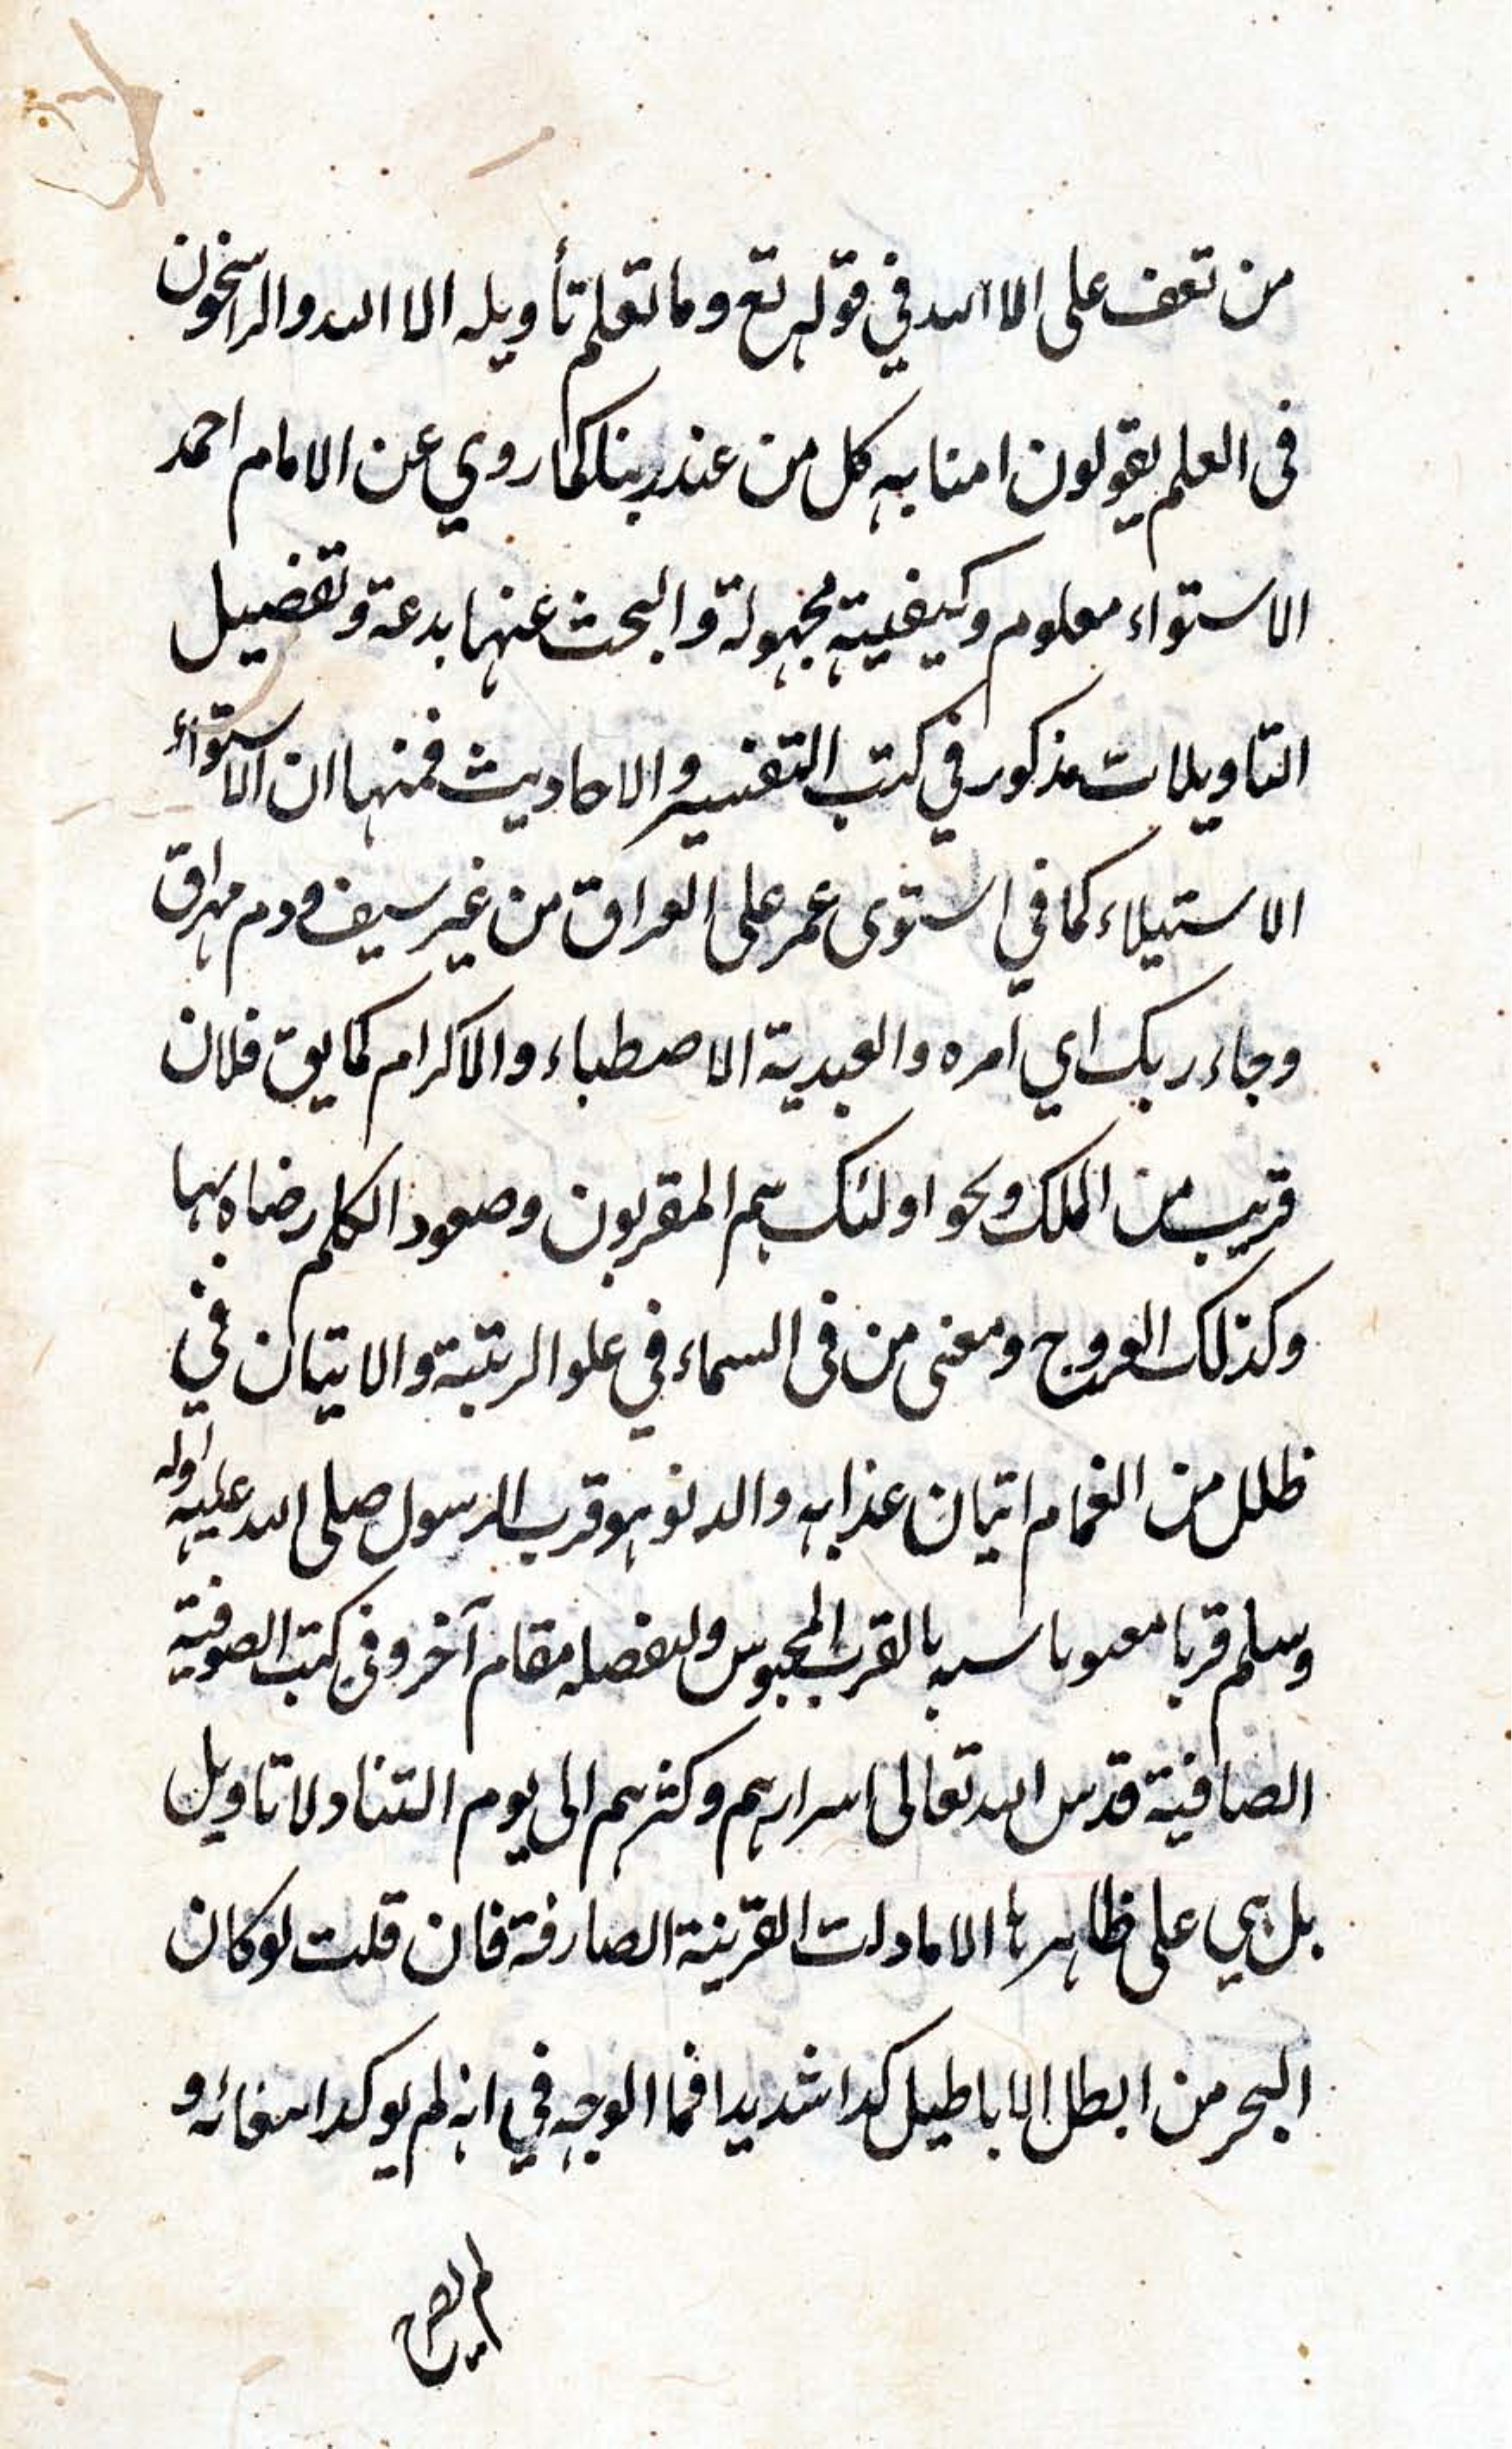 من تعف على الا الله في قوله تع وما تعلم تأويله الا الله والراسخون
فى العلم يقولون امنا به كل من عند ربنا كما روي عن الامام احمد
الاستواء معلوم وكيفيته مجهولة والبحث عنها بدعة وتفضيل
التاويلات مذكور في كتب التفسير والاحاديث فمنها ان الاستواء
الاستيلاء كما في استوى عمر على العراق من غير سيف ودم مهراق
وجاء ربك اي امره والعبدية الاصطباء والاكرام كما يق فلان
قريب من الملك ونحو اولئك هم المقربون وصعود الكلم رضاه بها
وكذلك العروج ومعنى من فى السماء في علو الرتبة والاتيان في
ظلل من الغمام اتيان عذابه والدنو هو قرب الرسول صلى الله عليه واله
وسلم قربا بالقرب المحبوس مقام آخر وفى كتب الصوفية
الصافية قدس الله تعالى اسرارهم وكثرهم الى يوم التناد لا تاويل
بل هي على ظاهرها الا ما دلت القرينة الصارفة فان قلت لو كان
البحر من ابطل الاباطيل كدا شديدا فما الوجه في انه لم يوكد و
لم يصرح